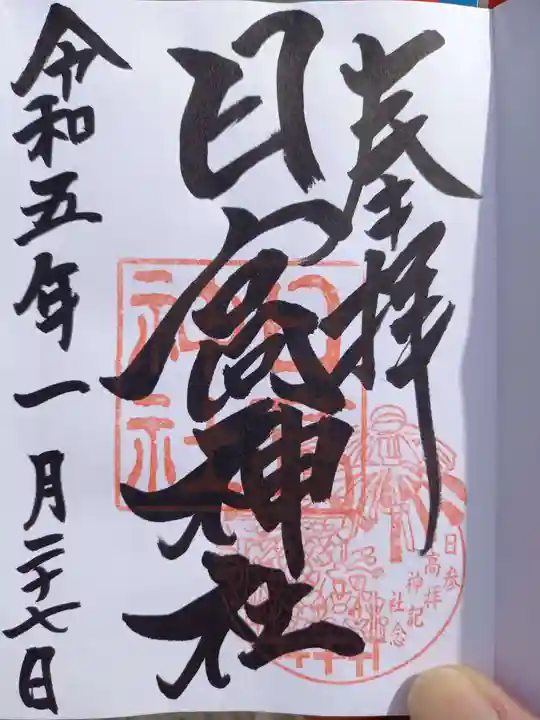 奉拝
日高神社
令和五年一月二十七日
日高神社
参拝記念
日高神社